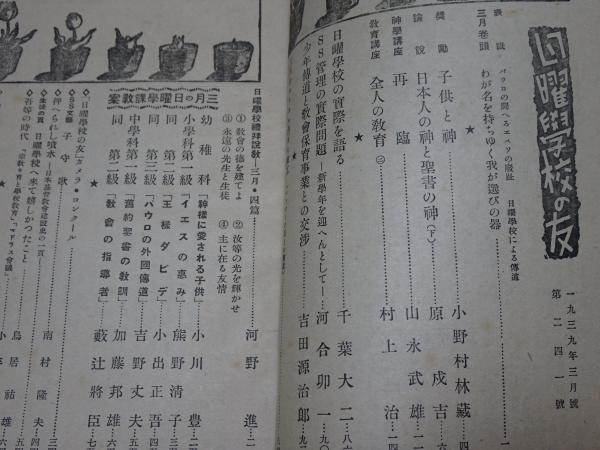 日曜學校の友
一九三九年三月號
第二四一號
表識 パウロの聞へるエペソの廢趾
三月卷頭 わが名を持ちゆく我が選びの器
日曜學校による傳道
奬勵 子供と神 小野村林藏 四
論說 日本人の神と聖書の神(下) 原戍吉 六
再臨 山永武雄 一二
神學講座
教育講座 全人の教育㈡ 村上治 一四
★
日曜學校の實際を語る 千葉大二 八
SS管理の實際問題―新學年を迎へんとして― 河合卯一 九
少年傳道と教會保育事業との交渉 吉田源治郎 九
★
日曜學校禮拜說教―三月・四篇 河野進
①教會の德を建てよ ②汝等の光を輝かせ
③永遠の先生と生徒 ④主に在る友情
三月の日曜學課教案
幼稚科「神樣に愛される子供」 小川豊 二
小學科第一級「イエスの惠み」 熊野清子 三
同第二級「王樣ダビデ」 小出正吾 四
中學科第一級「パウロの外國傳道」 吉野丈夫 五
同第二級「舊約聖書の教訓」 加藤邦雄 六
同第三級「教會の指導者」 藪辻將臣 七
★
「日曜學校の友」カメラ・コンクール
SS聖畫 子守歌
◇押へられし噴水―日本基督教會建設史の一頁― 南村隆夫 四
生徒の頁 日曜學校へ來て嬉しかつたこと
◇吾等の時代「宗教々育と學校教育」「マドラス會議」 鳥居祐雄